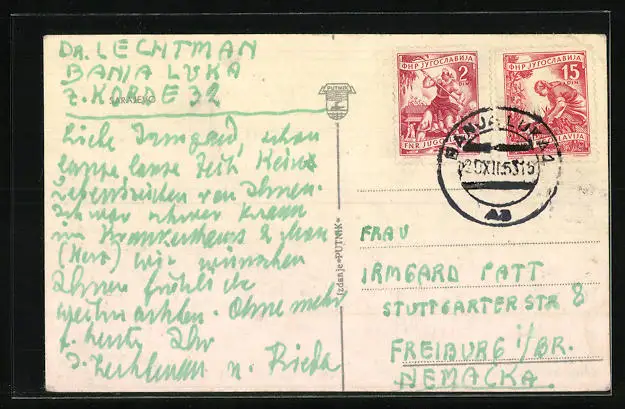 Dr. LECHTMAN
BANJA LUKA
Ž. KARDE 32
SARAJEVO
PUTNIK
Liebe Irmgard schon
lange lange Zeit keine
Lebenszeichen von Ihnen.
Ich war schwer krank
im Krankenhaus 2
(Herz) Wir wünschen
Ihnen fröhliche
Weihnachten. Ohne mehr
f. heute Ihr
J. Lechtman u. Rieda
Izdanje »PUTNIK«
ФНР ЈУГОСЛАВИЈА
2
DIN
FNR JUGO
ФНР ЈУГОСЛАВИЈА
15
DIN
AVIJA
BANJA LUKA 1
20XII.53 15
FRAU
IRMGARD PATT
STUTTGARTERSTR 8
FREIBURG i/BR.
NEMAČKA.